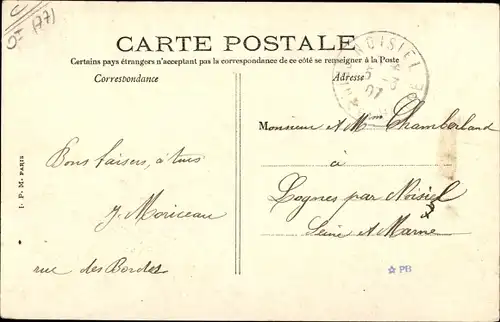 OI (77)
CARTE POSTALE
Certains pays étrangers n'acceptant pas la correspondance de ce côté se renseigner à la Poste
Correspondance
Adresse
NOISIEL
07
Monsieur et Mme Chamberland
à
Lognes par Noisiel
Seine et Marne
Bons baisers, à tous
J. Moriceau
rue des Bordes
I. P. M. PARIS
PB